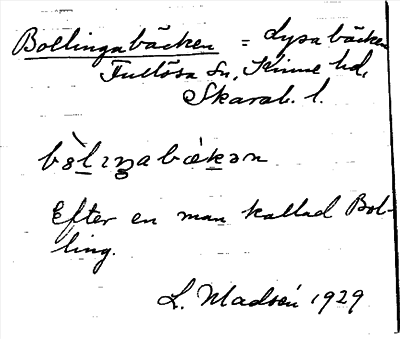 Bollingabäcken = Lysabäcken
Fullösa sn, Kinne hd,
Skarab. l.
bòlıŋabækən
Efter en man kallad Bol-
ling.
L. Madsén 1929